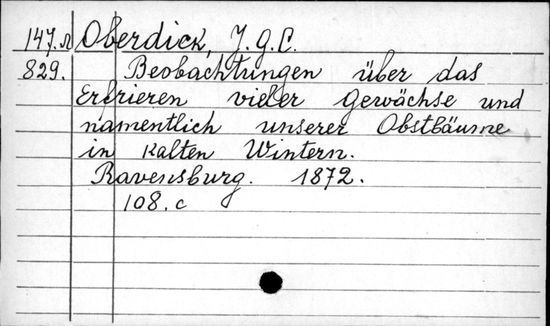 147.л Oberdick, J.G.C.
829. Beobachtungen über das
Erfrieren vieler Gewächse und
namentlich unserer Obstbäume
in kalten Wintern.
Ravensburg. 1872.
108. c